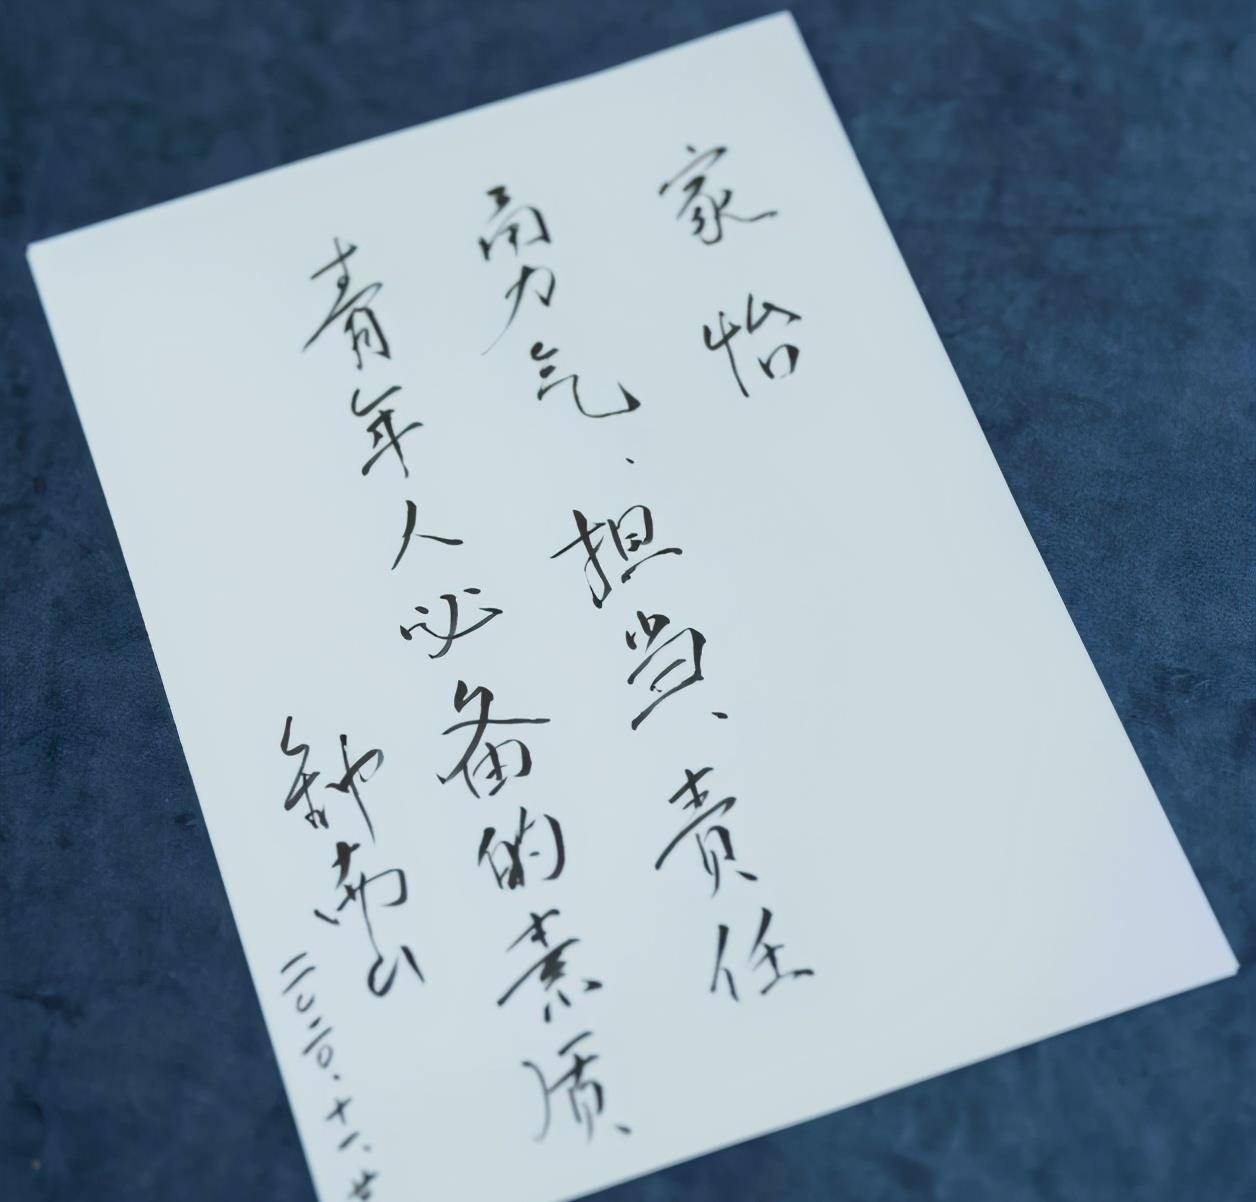 家怡
勇气、担当、责任
青年人必备的素质、
钟南山
二〇二〇.十一.廿